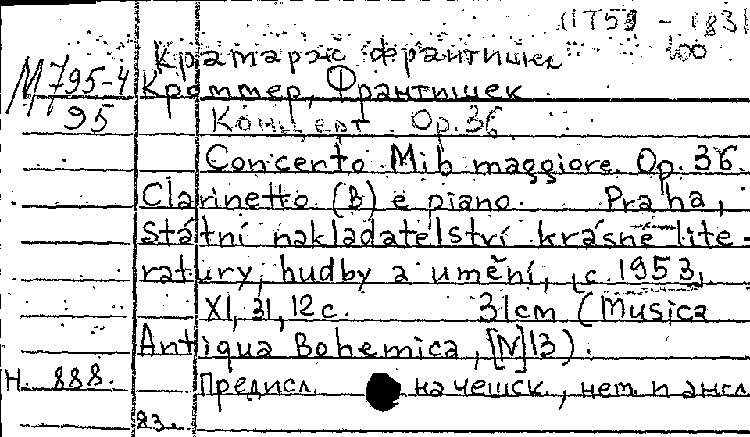 (1759 - 1831
Крамарж Франтишек
М 795-4
95
Кроммер, Франтишек
Концерт. Op. 36.
Concento Mib maggiore. Op. 36.
Clarinetto (B) e piano. Praha,
Státní nakladatelství krásné lite-
ratury, hudby a umění, [c. 1953]
XI, 31, 12 c. 31cm (Musica
Antiqua Bohemica, [N] 13).
Н. 888.
Предисл. на чешск., нем. и англ
83.